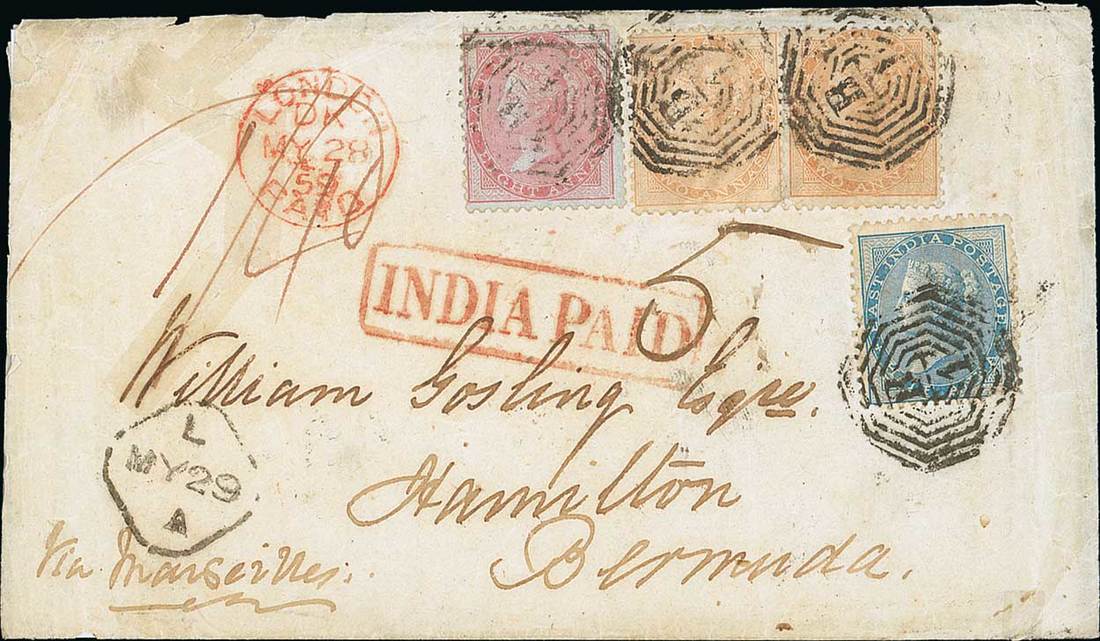 LONDON
MY 28
59
PAID
EIGHT ANNAS
TWO ANNAS
TWO ANNAS
EAST INDIA POSTAGE
INDIA PAID
5
William Gosling Esqre.
L
MY 29
A
Hamilton
Bermuda.
Via Marseilles.